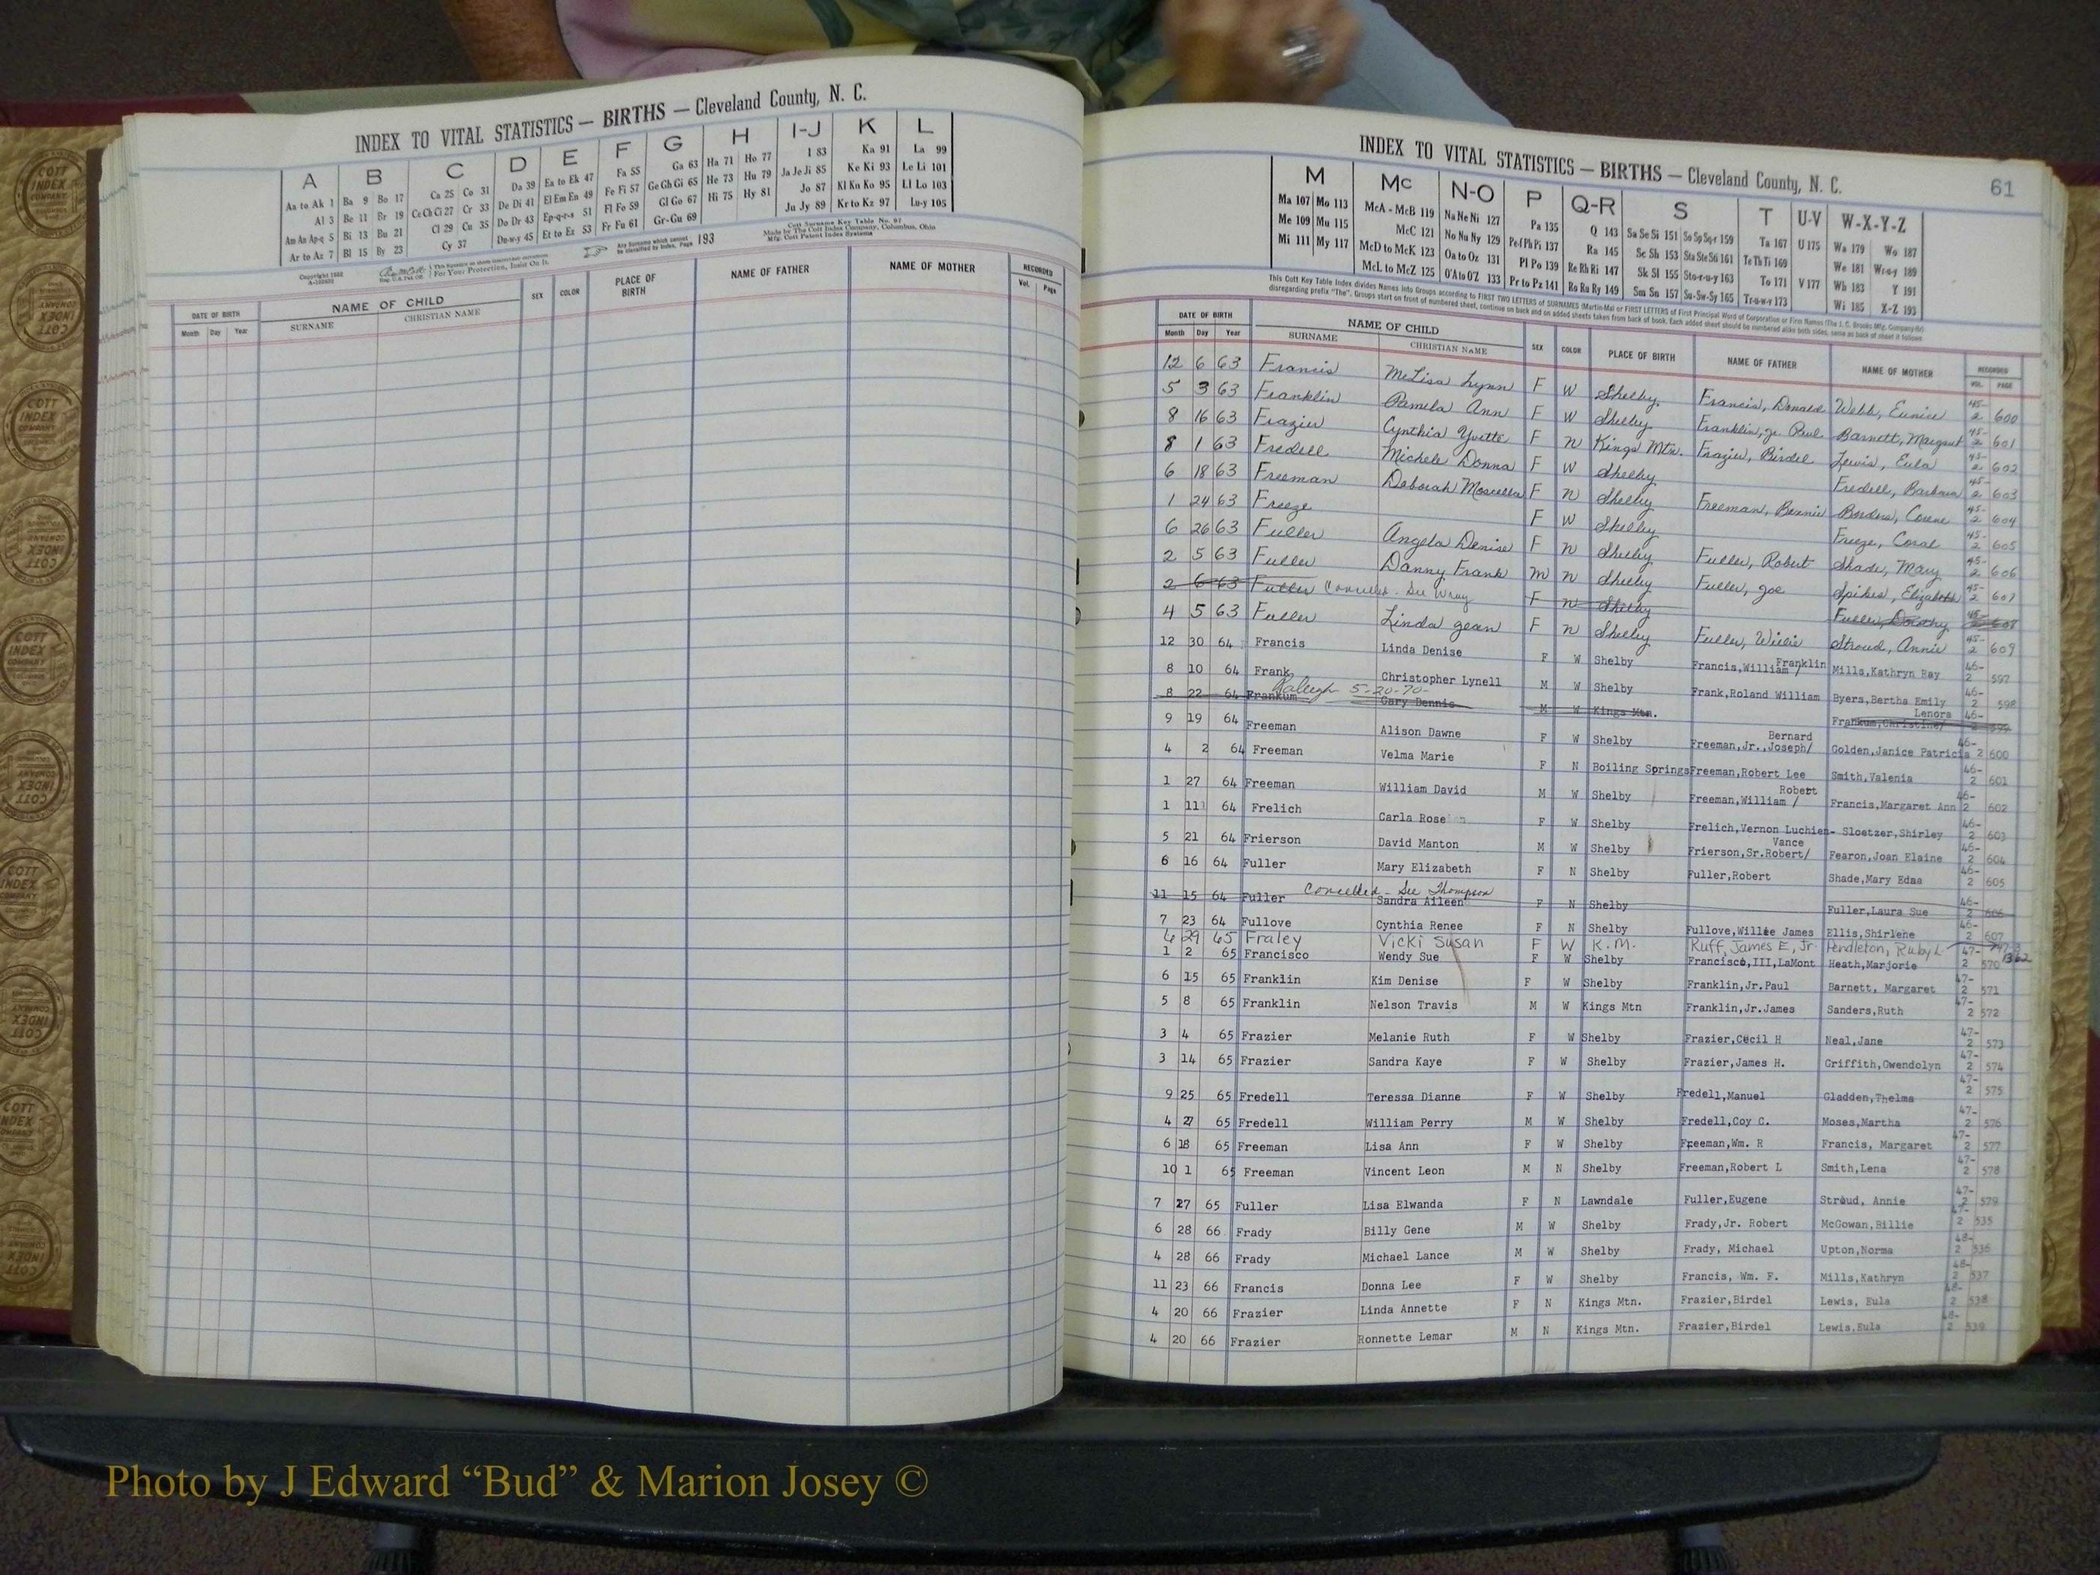 INDEX TO VITAL STATISTICS — BIRTHS — Cleveland County, N. C.
A B C D E F G H I-J K L
Aa to Ak 1 Ba 9 Bo 17 Ca 25 Co 31 Da 39 Ea to Ek 47 Fa 55 Ga 63 Ha 71 Ho 77 I 83 Ka 91 La 99
Al 3 Be 11 Br 19 Ce Ch Ci 27 Cr 33 De Di 41 El Em En 49 Fe Fi 57 Ge Gh Gi 65 He 73 Hu 79 Ja Je Ji 85 Ke Ki 93 Le Li 101
Am An Ap-q 5 Bi 13 Bu 21 Cl 29 Cu 35 Do Dr 43 Ep-q-r-s 51 Fl Fo 59 Gl Go 67 Hi 75 Hy 81 Jo 87 Kl Kn Ko 95 Ll Lo 103
Ar to Az 7 Bl 15 By 23 Cy 37 Du-w-y 45 Et to Ez 53 Fr Fu 61 Gr-Gu 69 Ju Jy 89 Kr to Kz 97 Lu-y 105
Any Surname which cannot be classified by Index, Page 193
Cott Surname Key Table No. 97
Made by The Cott Index Company, Columbus, Ohio
Mfg. Cott Patent Index Systems
For Your Protection, Insist On It.
DATE OF BIRTH NAME OF CHILD SEX COLOR PLACE OF BIRTH NAME OF FATHER NAME OF MOTHER RECORDED
Month Day Year SURNAME CHRISTIAN NAME Vol. Page
61
INDEX TO VITAL STATISTICS — BIRTHS — Cleveland County, N. C.
M Mc N-O P Q-R S T U-V W-X-Y-Z
Ma 107 Mo 113 McA - McB 119 Na Ne Ni 127 Pa 135 Q 143 Sa Se Si 151 So Sp Sq-r 159 Ta 167 U 175 Wa 179 Wo 187
Me 109 Mu 115 McC 121 No Nu Ny 129 Pe f Ph Pi 137 Ra 145 Sc Sh 153 Sta Ste Sti 161 Te Th Ti 169 We 181 Wr-u-y 189
Mi 111 My 117 McD to McK 123 Oa to Oz 131 Pl Po 139 Re Rh Ri 147 Sk Sl 155 Sto-r-u-y 163 To 171 V 177 Wh 183 Y 191
McL to McZ 125 O'A to O'Z 133 Pr to Pz 141 Ro Ru Ry 149 Sm Sn 157 Su-Sw-Sy 165 Tr-u-w-y 173 Wi 185 X-Z 193
This Cott Key Table Index divides Names into Groups according to FIRST TWO LETTERS of SURNAMES (Martin-Ma) or FIRST LETTERS of First Principal Word of Corporation or Firm Names (The J. C. Brooks Mfg. Company-Br)
disregarding prefix "The". Groups start on front of numbered sheet, continue on back and on added sheets taken from back of book. Each added sheet should be numbered alike both sides, same as back of sheet it follows
DATE OF BIRTH NAME OF CHILD SEX COLOR PLACE OF BIRTH NAME OF FATHER NAME OF MOTHER RECORDED
Month Day Year SURNAME CHRISTIAN NAME VOL. PAGE
12 6 63 Francis McLisa Lynn F W Shelby Francis, Donald Webb, Eunice 45-2 600
5 3 63 Franklin Pamela Ann F W Shelby Franklin, Jr. Paul Barnett, Margaret 45-2 601
8 16 63 Frazier Cynthia Yvette F N Kings Mtn. Frazier, Birdel Lewis, Eula 45-2 602
8 1 63 Fredell Michele Donna F W Shelby Fredell, Barbara 45-2 603
6 18 63 Freeman Deborah Moscella F N Shelby Freeman, Bennie Borders, Corene 45-2 604
1 24 63 Freeze F W Shelby Freeze, Coral 45-2 605
6 26 63 Fuller Angela Denise F N Shelby Fuller, Robert Shade, Mary 45-2 606
2 5 63 Fuller Danny Frank M N Shelby Fuller, Joe Spikes, Elizabeth 45-2 607
2 6 63 Fuller Cancelled - See Wray F N Shelby Fuller, Dorothy 45-2 608
4 5 63 Fuller Linda Jean F N Shelby Fuller, Willie Stroud, Annie 45-2 609
12 30 64 Francis Linda Denise F W Shelby Francis,William/ Franklin Mills,Kathryn Ray 46-2 597
8 10 64 Frank Christopher Lynell M W Shelby Frank,Roland William Byers,Bertha Emily 46-2 598
8 22 64 Frankum Raleigh 5-20-70- Gary Dennis M W Kings Mtn. Frankum,Christine/ Lenora 46-2 599
9 19 64 Freeman Alison Dawne F W Shelby Freeman,Jr.,Joseph/ Bernard Golden,Janice Patricia 46-2 600
4 2 64 Freeman Velma Marie F N Boiling Springs Freeman,Robert Lee Smith,Valenia 46-2 601
1 27 64 Freeman William David M W Shelby Freeman,William / Robert Francis,Margaret Ann 46-2 602
1 11 64 Frelich Carla Rose F W Shelby Frelich,Vernon Luchien- Sloetzer,Shirley 46-2 603
5 21 64 Frierson David Manton M W Shelby Frierson,Sr.Robert/ Vance Fearon,Joan Elaine 46-2 604
6 16 64 Fuller Mary Elizabeth F N Shelby Fuller,Robert Shade,Mary Edna 46-2 605
11 15 64 Fuller Cancelled - See Thompson Sandra Aileen F N Shelby Fuller,Laura Sue 46-2 606
7 23 64 Fullove Cynthia Renee F N Shelby Fullove,Willie James Ellis,Shirlene 46-2 607
6 29 65 Fraley Vicki Susan F W K.M. Ruff, James E, Jr. Pendleton, Ruby L 1362
1 2 65 Francisco Wendy Sue F W Shelby Francisco,III,LaMont Heath,Marjorie 47-2 570
6 15 65 Franklin Kim Denise F W Shelby Franklin,Jr.Paul Barnett, Margaret 47-2 571
5 8 65 Franklin Nelson Travis M W Kings Mtn Franklin,Jr.James Sanders,Ruth 47-2 572
3 4 65 Frazier Melanie Ruth F W Shelby Frazier,Cecil H Neal,Jane 47-2 573
3 14 65 Frazier Sandra Kaye F W Shelby Frazier,James H. Griffith,Gwendolyn 47-2 574
9 25 65 Fredell Teressa Dianne F W Shelby Fredell,Manuel Gladden,Thelma 47-2 575
4 27 65 Fredell William Perry M W Shelby Fredell,Coy C. Moses,Martha 47-2 576
6 18 65 Freeman Lisa Ann F W Shelby Freeman,Wm. R Francis, Margaret 47-2 577
10 1 65 Freeman Vincent Leon M N Shelby Freeman,Robert L Smith,Lena 47-2 578
7 27 65 Fuller Lisa Elwanda F N Lawndale Fuller,Eugene Stroud, Annie 47-2 579
6 28 66 Frady Billy Gene M W Shelby Frady,Jr. Robert McGowan,Billie 2 535
4 28 66 Frady Michael Lance M W Shelby Frady, Michael Upton,Norma 48-2 536
11 23 66 Francis Donna Lee F W Shelby Francis, Wm. F. Mills,Kathryn 48-2 537
4 20 66 Frazier Linda Annette F N Kings Mtn. Frazier,Birdel Lewis, Eula 48-2 538
4 20 66 Frazier Ronnette Lemar M N Kings Mtn. Frazier,Birdel Lewis,Eula 48-2 539
Photo by J Edward “Bud” & Marion Josey ©